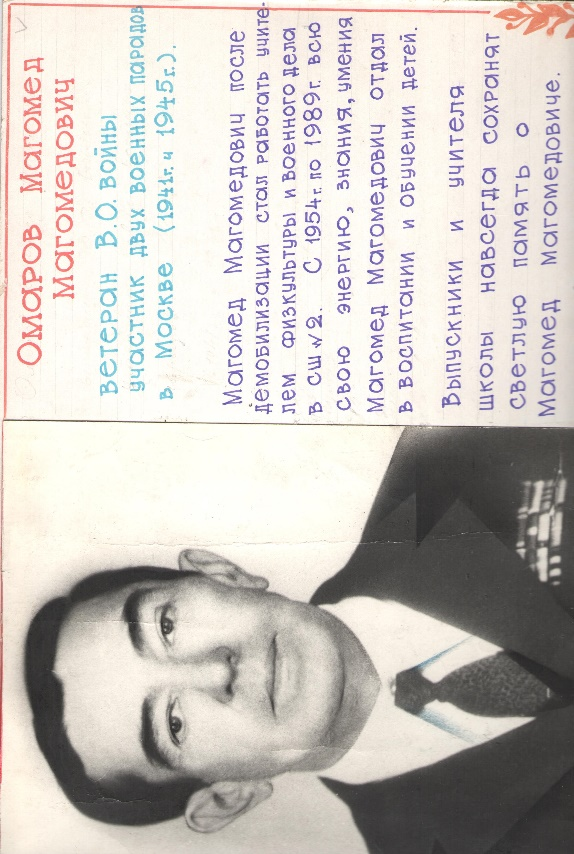 Омаров Магомед
Магомедович
ветеран В.О. войны
участник двух военных парадов
в Москве (1941г. и 1945г.).
Магомед Магомедович после
демобилизации стал работать учите-
лем физкультуры и военного дела
в СШ №2. С 1954г. по 1989г. всю
свою энергию, знания, умения
Магомед Магомедович отдал
в воспитании и обучении детей.
Выпускники и учителя
школы навсегда сохранят
светлую память о
Магомед Магомедовиче.